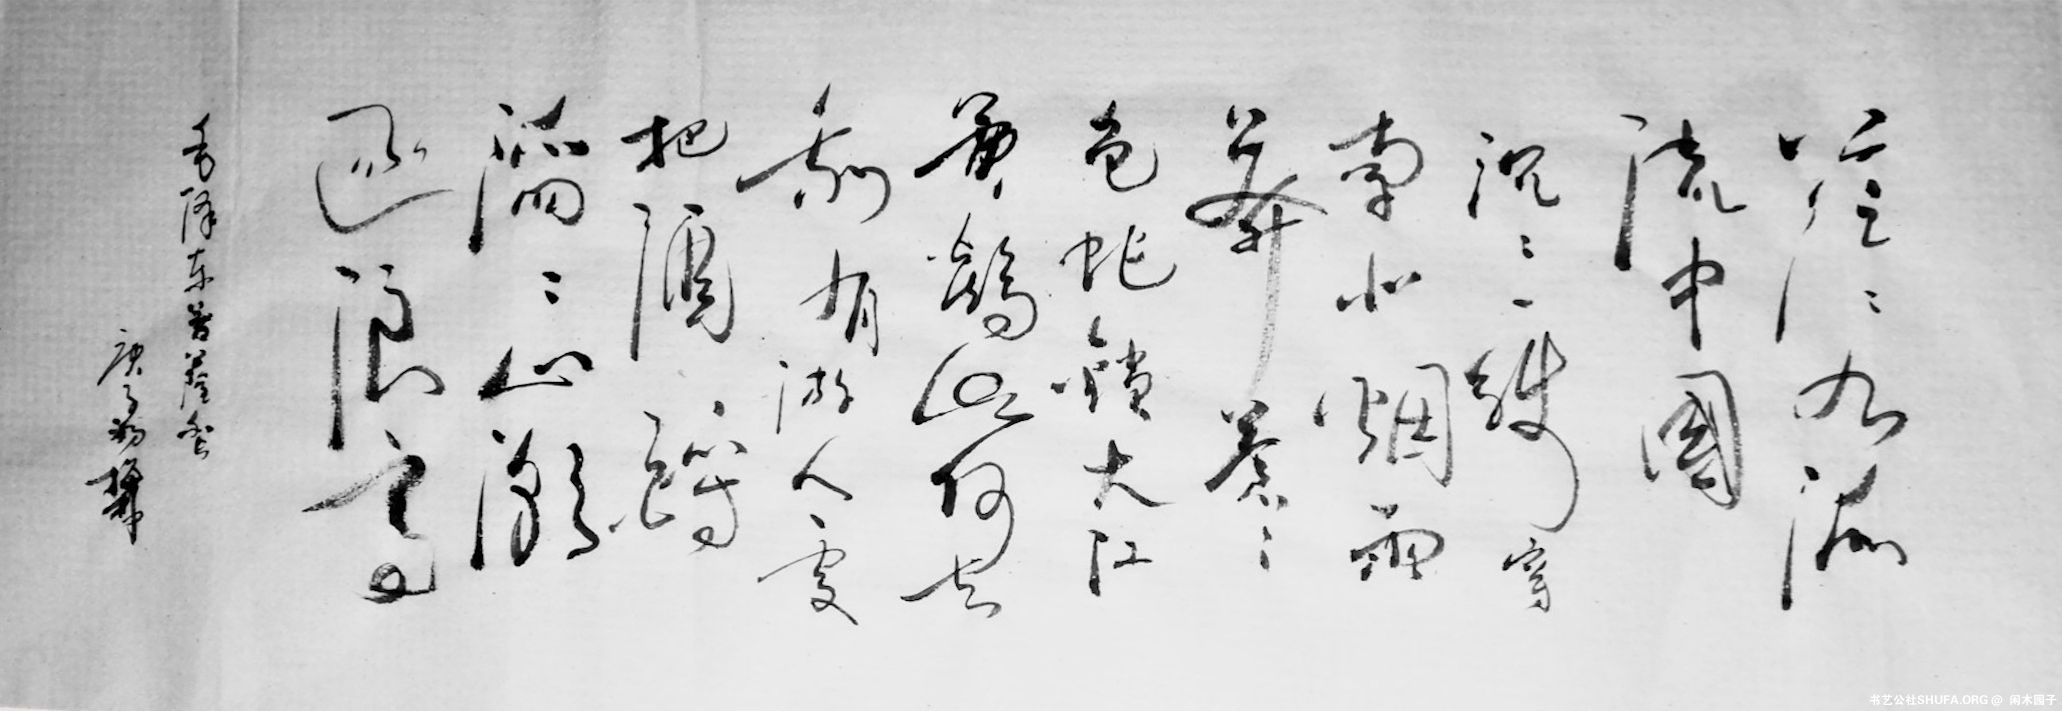 茫〻九派
流中國
沉〻一线穿
南北烟雨
莽蒼〻
龟蛇鎖大江
黄鶴知何去
剩有游人处
把酒酹
滔〻心潮
逐浪高
毛澤东菩薩蛮
庚子初
书艺公社SHUFA.ORG @ 闲木园子